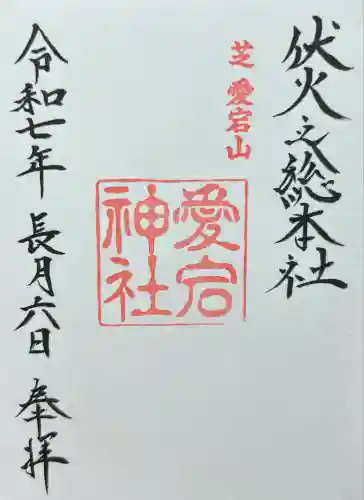 伏火之総本社
芝愛宕山
愛宕
神社
令和七年 長月六日 奉拝